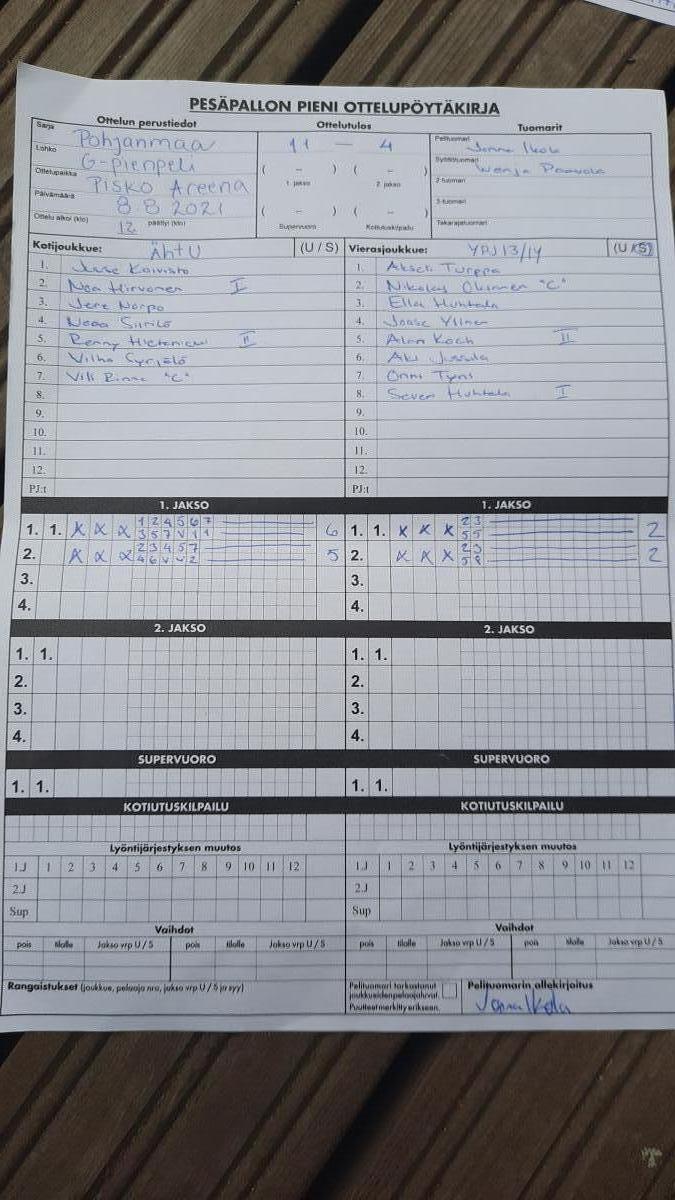 PESÄPALLON PIENI OTTELUPÖYTÄKIRJA
Ottelun perustiedot
Ottelutulos
Tuomarit
Sarja Pohjanmaa
Lohko G-pienpeli
Ottelupaikka Pisko Areena
Päivämäärä 8.8 2021
Ottelu alkoi (klo) 12 päättyi (klo)
11 – 4
( – ) ( – )
1. jakso 2. jakso
( – ) ( – )
Supervuoro Kotiutuskilpailu
Pelituomari
Syöttötuomari
2-tuomari
3-tuomari
Takarajatuomari
Kotijoukkue: ÄhtU (U / S)
1. Koivisto
2. Noa Hirvonen I
3. Jere Norpo
4. Nooa
5. II
6. Vilho
7. Vili Rinne "C"
8.
9.
10.
11.
12.
PJ:t
Vierasjoukkue: YPJ 13/14 (U / S)
1. Turppa
2. Nikolas "C"
3. Huhtala
4.
5. Alan Koch II
6. Aku
7. Onni
8. Huhtala I
9.
10.
11.
12.
PJ:t
1. JAKSO
1. 1. X X X 1 2 4 5 6 7 6
3 5 7 V 1 1
2. X X X 2 3 4 5 7 5
4 6 V V 2
3.
4.
1. JAKSO
1. 1. X X X 2 3 2
5 5
2. X X X 2 3 2
5 8
3.
4.
2. JAKSO
1. 1.
2.
3.
4.
2. JAKSO
1. 1.
2.
3.
4.
SUPERVUORO
1. 1.
SUPERVUORO
1. 1.
KOTIUTUSKILPAILU
KOTIUTUSKILPAILU
Lyöntijärjestyksen muutos
1.J 1 2 3 4 5 6 7 8 9 10 11 12
2.J
Sup
Lyöntijärjestyksen muutos
1.J 1 2 3 4 5 6 7 8 9 10 11 12
2.J
Sup
Vaihdot
pois tilalle Jakso vrp U / S pois tilalle Jakso vrp U / S
Vaihdot
pois tilalle Jakso vrp U / S pois tilalle Jakso vrp U / S
Rangaistukset (joukkue, pelaaja nro, jakso vrp U / S ja syy)
Pelituomari tarkastanut
joukkueiden pelaajaluvat.
Puutteet merkitty erikseen.
Pelituomarin allekirjoitus